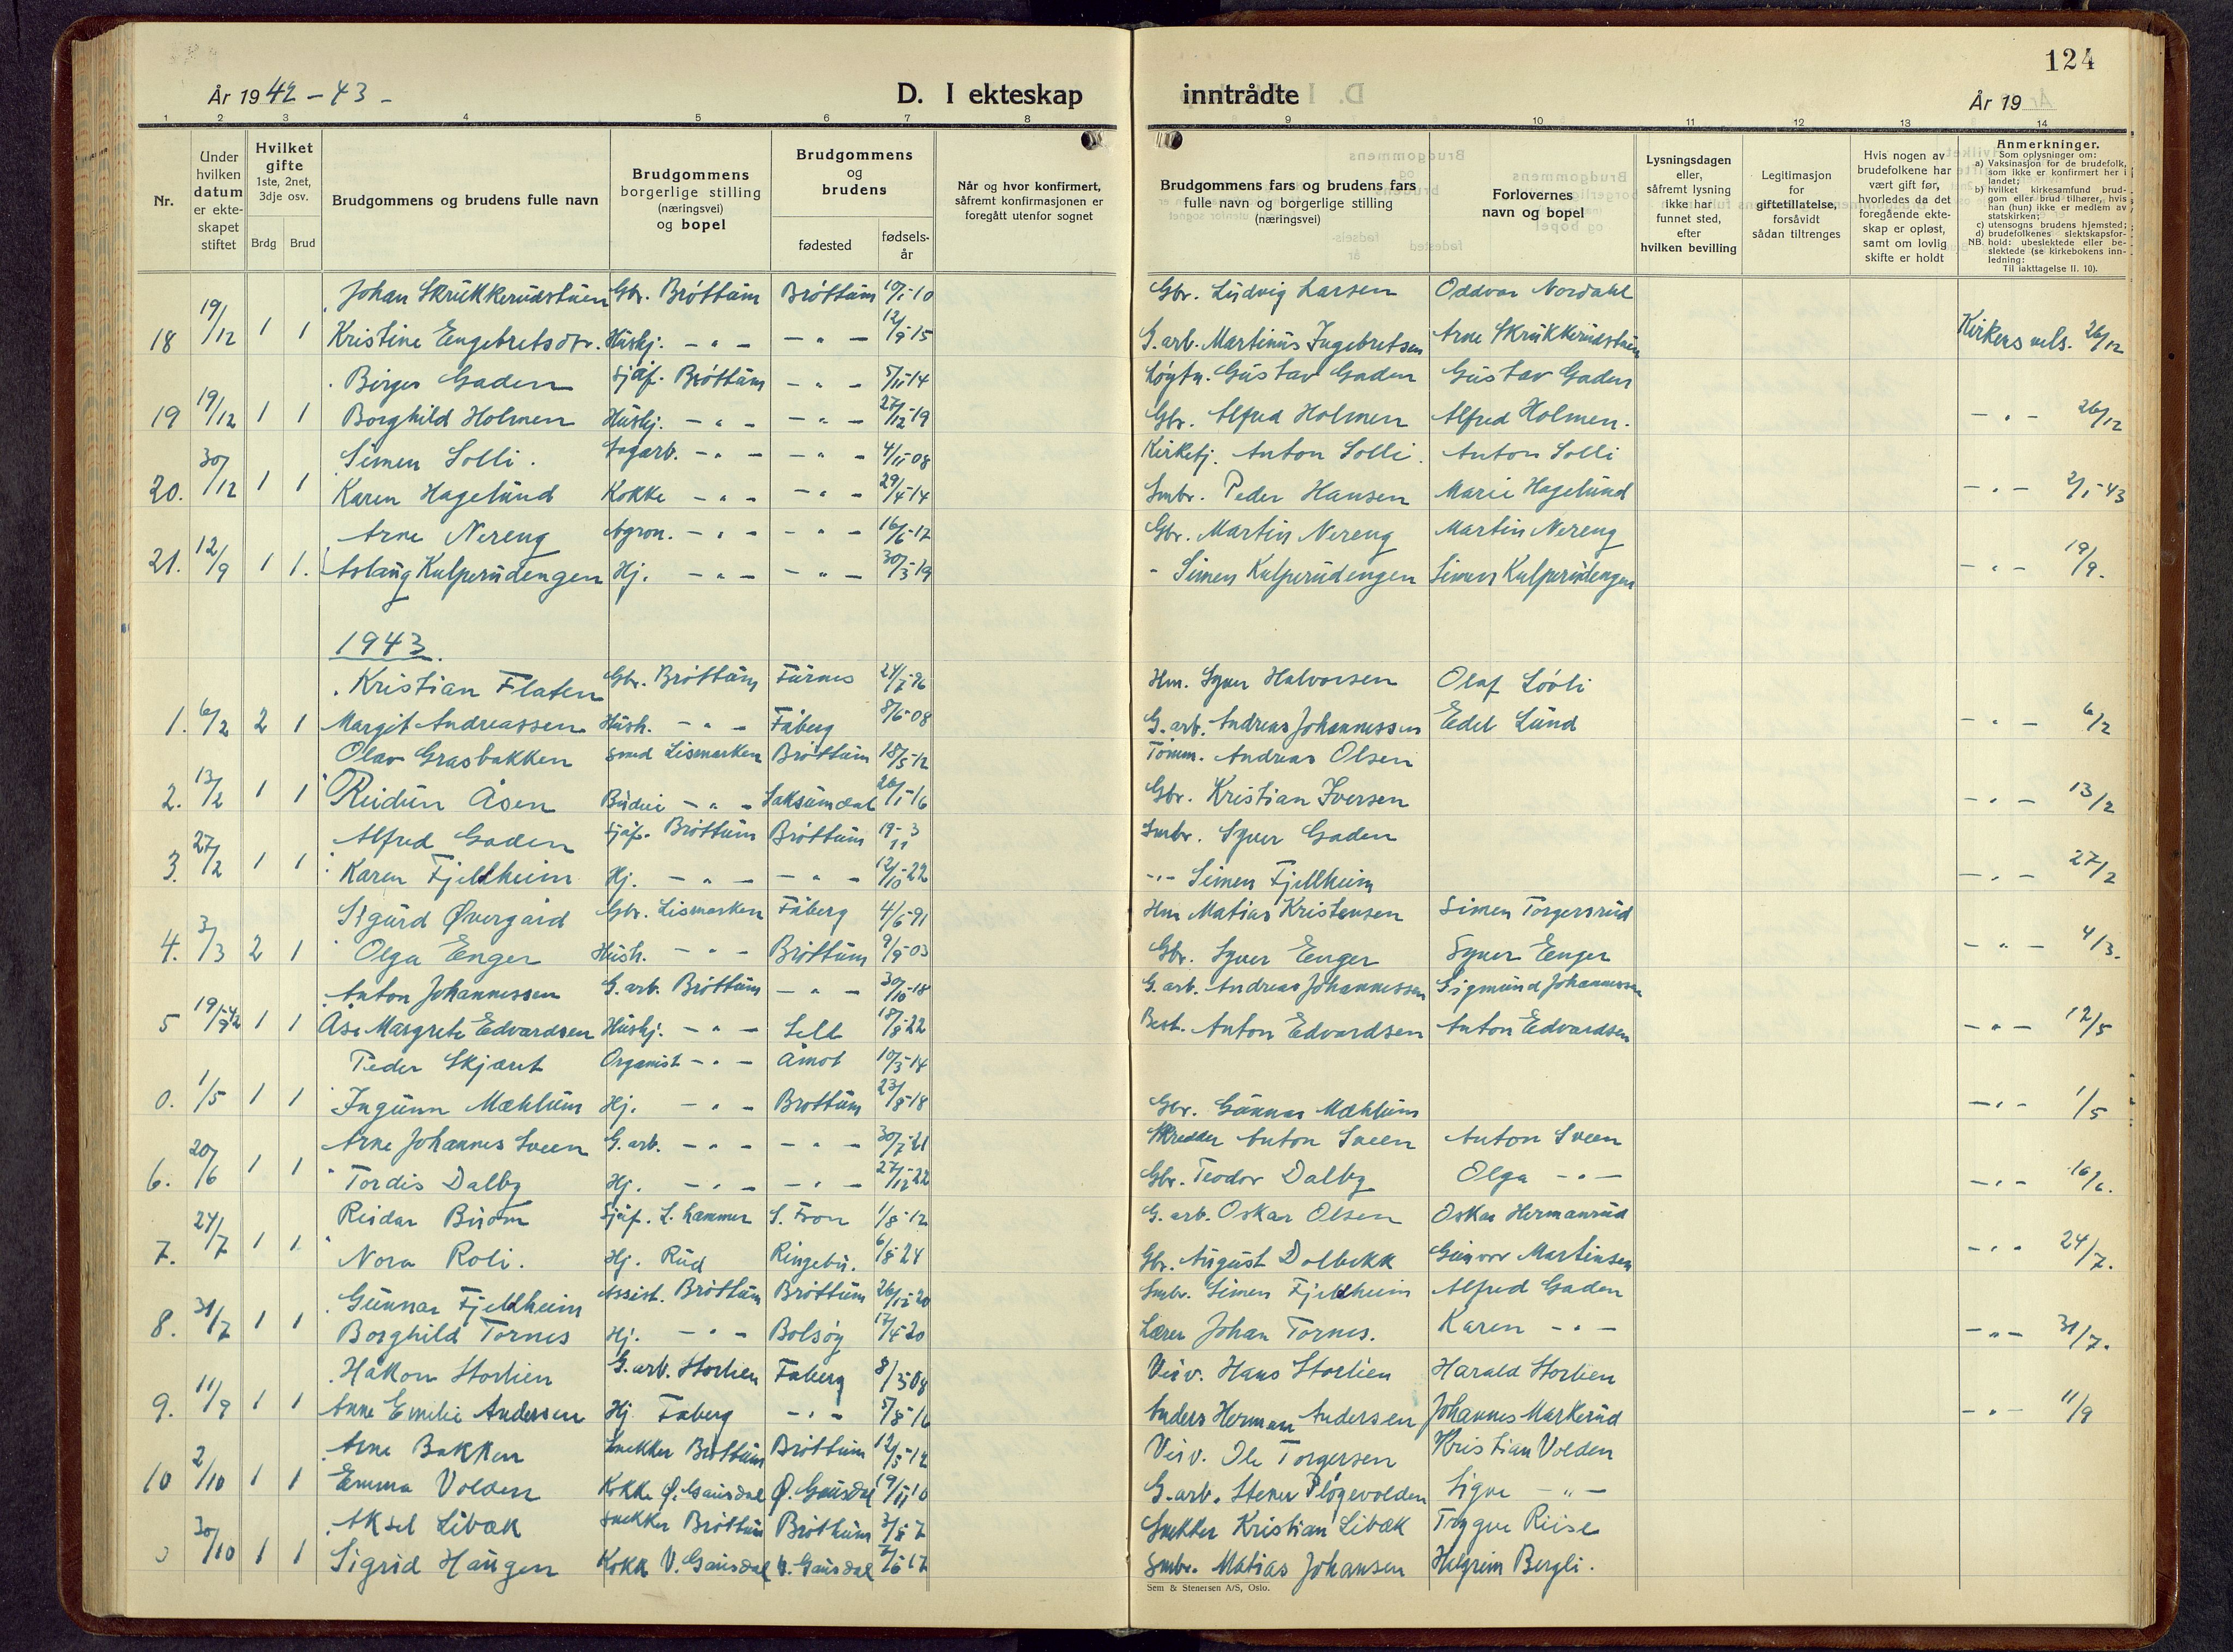 124
År 1942 - 43 -
D. I ekteskap inntrådte
År 19
1 2 3 4 5 6 7 8 9 10 11 12 13 14
Nr.
Under hvilken datum er ekteskapet stiftet
Hvilket gifte 1ste, 2net, 3dje osv.
Brdg Brud
Brudgommens og brudens fulle navn
Brudgommens borgerlige stilling (næringsvei) og bopel
Brudgommens og brudens
fødested
fødselsår
Når og hvor konfirmert, såfremt konfirmasjonen er foregått utenfor sognet
Brudgommens fars og brudens fars fulle navn og borgerlige stilling (næringsvei)
Forlovernes navn og bopel
Lysningsdagen eller, såfremt lysning ikke har funnet sted, efter hvilken bevilling
Legitimasjon for giftetillatelse, forsåvidt sådan tiltrenges
Hvis nogen av brudefolkene har vært gift før, hvorledes da det foregående ekteskap er opløst, samt om lovlig skifte er holdt
Anmerkninger.
Som oplysninger om:
a) Vaksinasjon for de brudefolk, som ikke er konfirmert her i landet;
b) hvilket kirkesamfund brudgom eller brud tilhører, hvis han (hun) ikke er medlem av statskirken;
c) utensogns brudens hjemsted;
d) brudefolkenes slektskapsforhold: ubeslektede eller beslektede (se kirkebokens innledning:
NB. Til iakttagelse II. 10).
Johan Skrukkerudstuen Gbr. Brøttum Brøttum 10/1-10 Gbr. Ludvig Larsen Oddvar Nordahl
18 19/12 1 1 Kristine Engebretsdtr. Hushj. - " - - " - 12/9-15 G.arb. Martinus Ingebretsen Arne Skrukkerudstuen Kirkens vels. 26/12
Birger Gaden Sjåf. Brøttum - " - 5/11-14 Løytn. Gustav Gaden Gustav Gaden
19 19/12 1 1 Borghild Holmen Hushj. - " - - " - 27/12-19 Gbr. Alfred Holmen Alfred Holmen. - " - 26/12
Simen Solli. Sagarb. - " - - " - 4/11-08 Kirketj. Anton Solli. Anton Solli
20. 30/12 1 1 Karen Hagelund Kokke - " - - " - 29/4-14 Smbr. Peder Hansen Marie Hagelund - " - 2/1-43
Arne Nereng Agron. - " - - " - 16/6-17 Gbr. Martin Nereng Martin Nereng
21. 12/9 1 1. Aslaug Kulperudengen Hj. - " - - " - 30/3-19 - Simen Kulperudengen Simen Kulperudengen - " - 19/9.
1943.
Kristian Flaten Gbr. Brøttum Furnes 24/7-96 Hm. Syver Halvorsen Olaf Lööli
1. 6/2 2 1 Margit Andreassen Hush. - " - Fåberg 8/6-08 G.arb. Andreas Johannessen Edel Lund - " - 6/2
Olav Grasbakken Smed Lismarken Brøttum 18/5-12 Tömm. Andreas Olsen
2. 13/2 1 1 Reidun Åsen Budeie - " - Saksumdal 26/1-16 Gbr. Kristian Iversen - " - 13/2
Alfred Gaden Sjåf. Brøttum Brøttum 19-3/11 Smbr. Syver Gaden
3. 27/2 1 1 Karen Fjellheim Hj. - " - - " - 12/10-22 - " - Simen Fjellheim - " - 27/2
Sigurd Øvergård Gbr. Lismarken Fåberg 4/6-91 Hm Matias Kristensen Simen Torgersrud
4. 3/3 2 1 Olga Enger Hush. - " - Brøttum 9/9-03 Gbr. Syver Enger Syver Enger - " - 4/3.
Anton Johannessen G.arb. Brøttum - " - 30/10-18 G.arb. Andreas Johannessen Sigmund Johannessen
5 19/9-42 1 1 Åse Margrete Edvardsen Hushj. - " - 18/8-22 Best. Anton Edvardsen Anton Edvardsen - " - 12/5
Peder Skjæret Organist - " - Åmot 10/3-14
0. 1/5 1 1 Ingunn Mæhlum Hj. - " - Brøttum 23/8-18 Gbr. Gunnar Mæhlum - " - 1/5
Arne Johannes Sveen G.arb. - " - - " - 30/7-21 Skredder Anton Sveen Anton Sveen
6. 20/6 1 1 Tordis Dalby Hj. - " - - " - 27/12-22 Gbr. Teodor Dalby Olga - " - - " - 10/6.
Reidar Buom Sjåf. L.hammer S. Fron 1/8-12 G.arb. Oskar Olsen Oskar Hermanrud
7. 24/7 1 1 Nora Roli. Hj. Rud Ringebu. 6/8-24 Gbr. August Dolbekk Gunvor Martinsen - " - 24/7.
Gunnar Fjeldheim Assist. Brøttum Brøttum 26/12-20 Smbr. Simen Fjeldheim Alfred Gaden
8. 31/7 1 1 Borghild Tornes Hj. - " - Bolsøy 17/4-20 Lærer Johan Tornes. Karen - " - - " - 31/7.
Håkon Storlien G.arb. Storlien Fåberg 8/3-08 Veiv. Hans Storlien Harald Storlien
9. 11/9 1 1 Anne Emilie Andersen Hj Faberg - " - 5/8-16 Anders Herman Andersen Johannes Markerud - " - 11/9
Arne Bakken Snekker Brøttum Brøttum 12/5-12 Veiv. Ole Torgersen Kristian Volden
10 2/10 1 1 Emma Volden Kokke Ø. Gausdal Ø. Gausdal 19/11-10 G.arb. Stener Pløgevolden Signe - " -
Aksel Libæk Snekker Brøttum Brøttum 3/8-7 Snekker Kristian Libæk Trygve Riise
30/10 1 1 Sigrid Haugen Kokk V. Gausdal V. Gausdal Smbr. Matias Johansen Halgrim Bergli.
Sem & Stenersen A/S, Oslo.